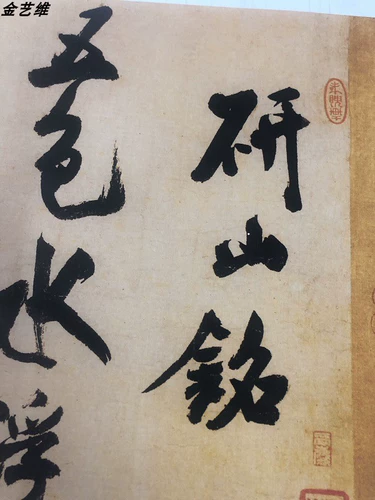 金艺维
研山銘
五色水浮